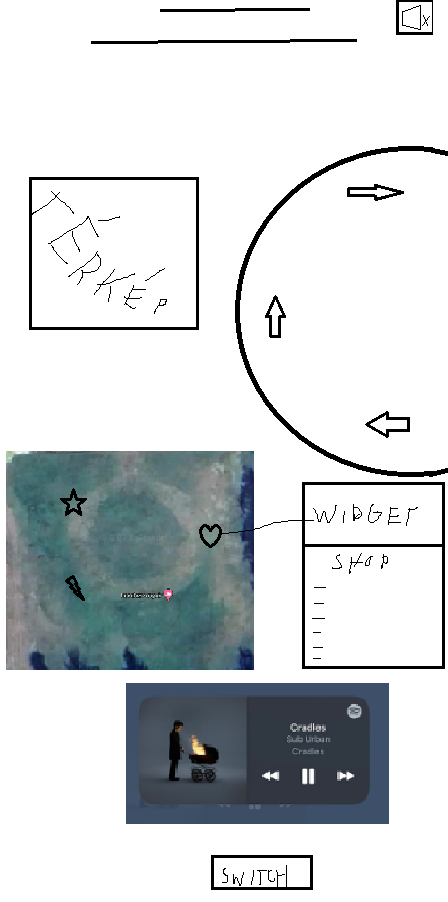 TÉRKÉP
WIDGET
SHOP
Cradles
Sub Urban
Cradles
SWITCH